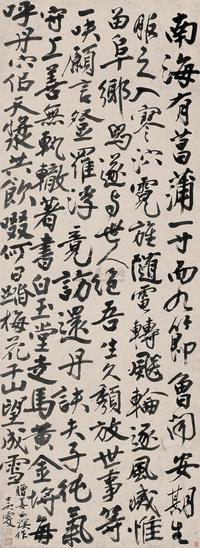 南海有菖蒲一寸而九節曾聞安期生
服之入寥泬霓旌隨電轉飈輪逐風滅惟
留阜鄉舄遂與世人絕吾生久頹放世事等
一吷願言登羅浮竟訪還丹訣夫子純氣
守上善無軌轍著書白玉堂走馬黃金埒每
呼丹穴侶天漿共飲啜何日踏梅花千山望成雪
溪作
吳雯